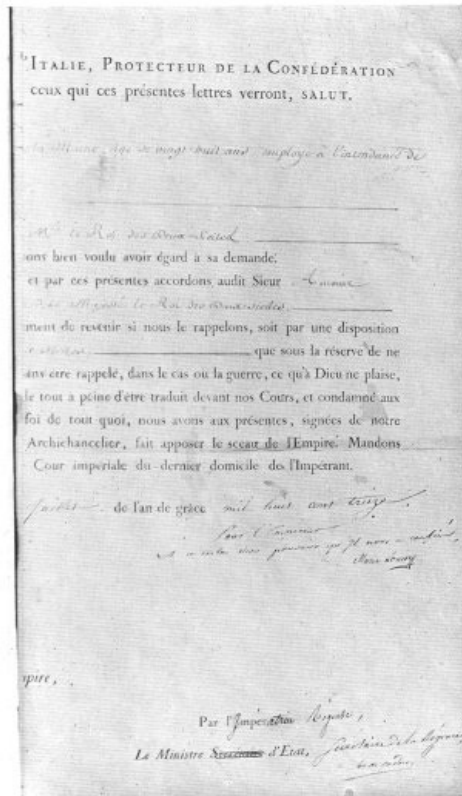 ITALIE, PROTECTEUR DE LA CONFÉDÉRATION
ceux qui ces présentes lettres verront, SALUT.
la Meurthe, âgé de vingt huit ans, employé à l'intendance de
le Roi des Deux-Siciles
ons bien voulu avoir égard à sa demande,
et par ces présentes accordons audit Sieur
Sa Majesté le Roi des Deux Siciles
ment de revenir si nous le rappelons, soit par une disposition
que sous la réserve de ne
ans être rappelé, dans le cas ou la guerre, ce qu'à Dieu ne plaise,
le tout à peine d'être traduit devant nos Cours, et condamné aux
foi de tout quoi, nous avons aux présentes, signées de notre
Archichancelier, fait apposer le sceau de l'Empire. Mandons
Cour impériale du dernier domicile de l'Impétrant.
juillet de l'an de grâce mil huit cent treize.
Pour l'Empereur
et en vertu des pouvoirs qu'il nous a confiés,
Marie Louise
pire,
Par l'Impératrice Régente,
Le Ministre Secrétaire d'Etat, Secrétaire de la Régence